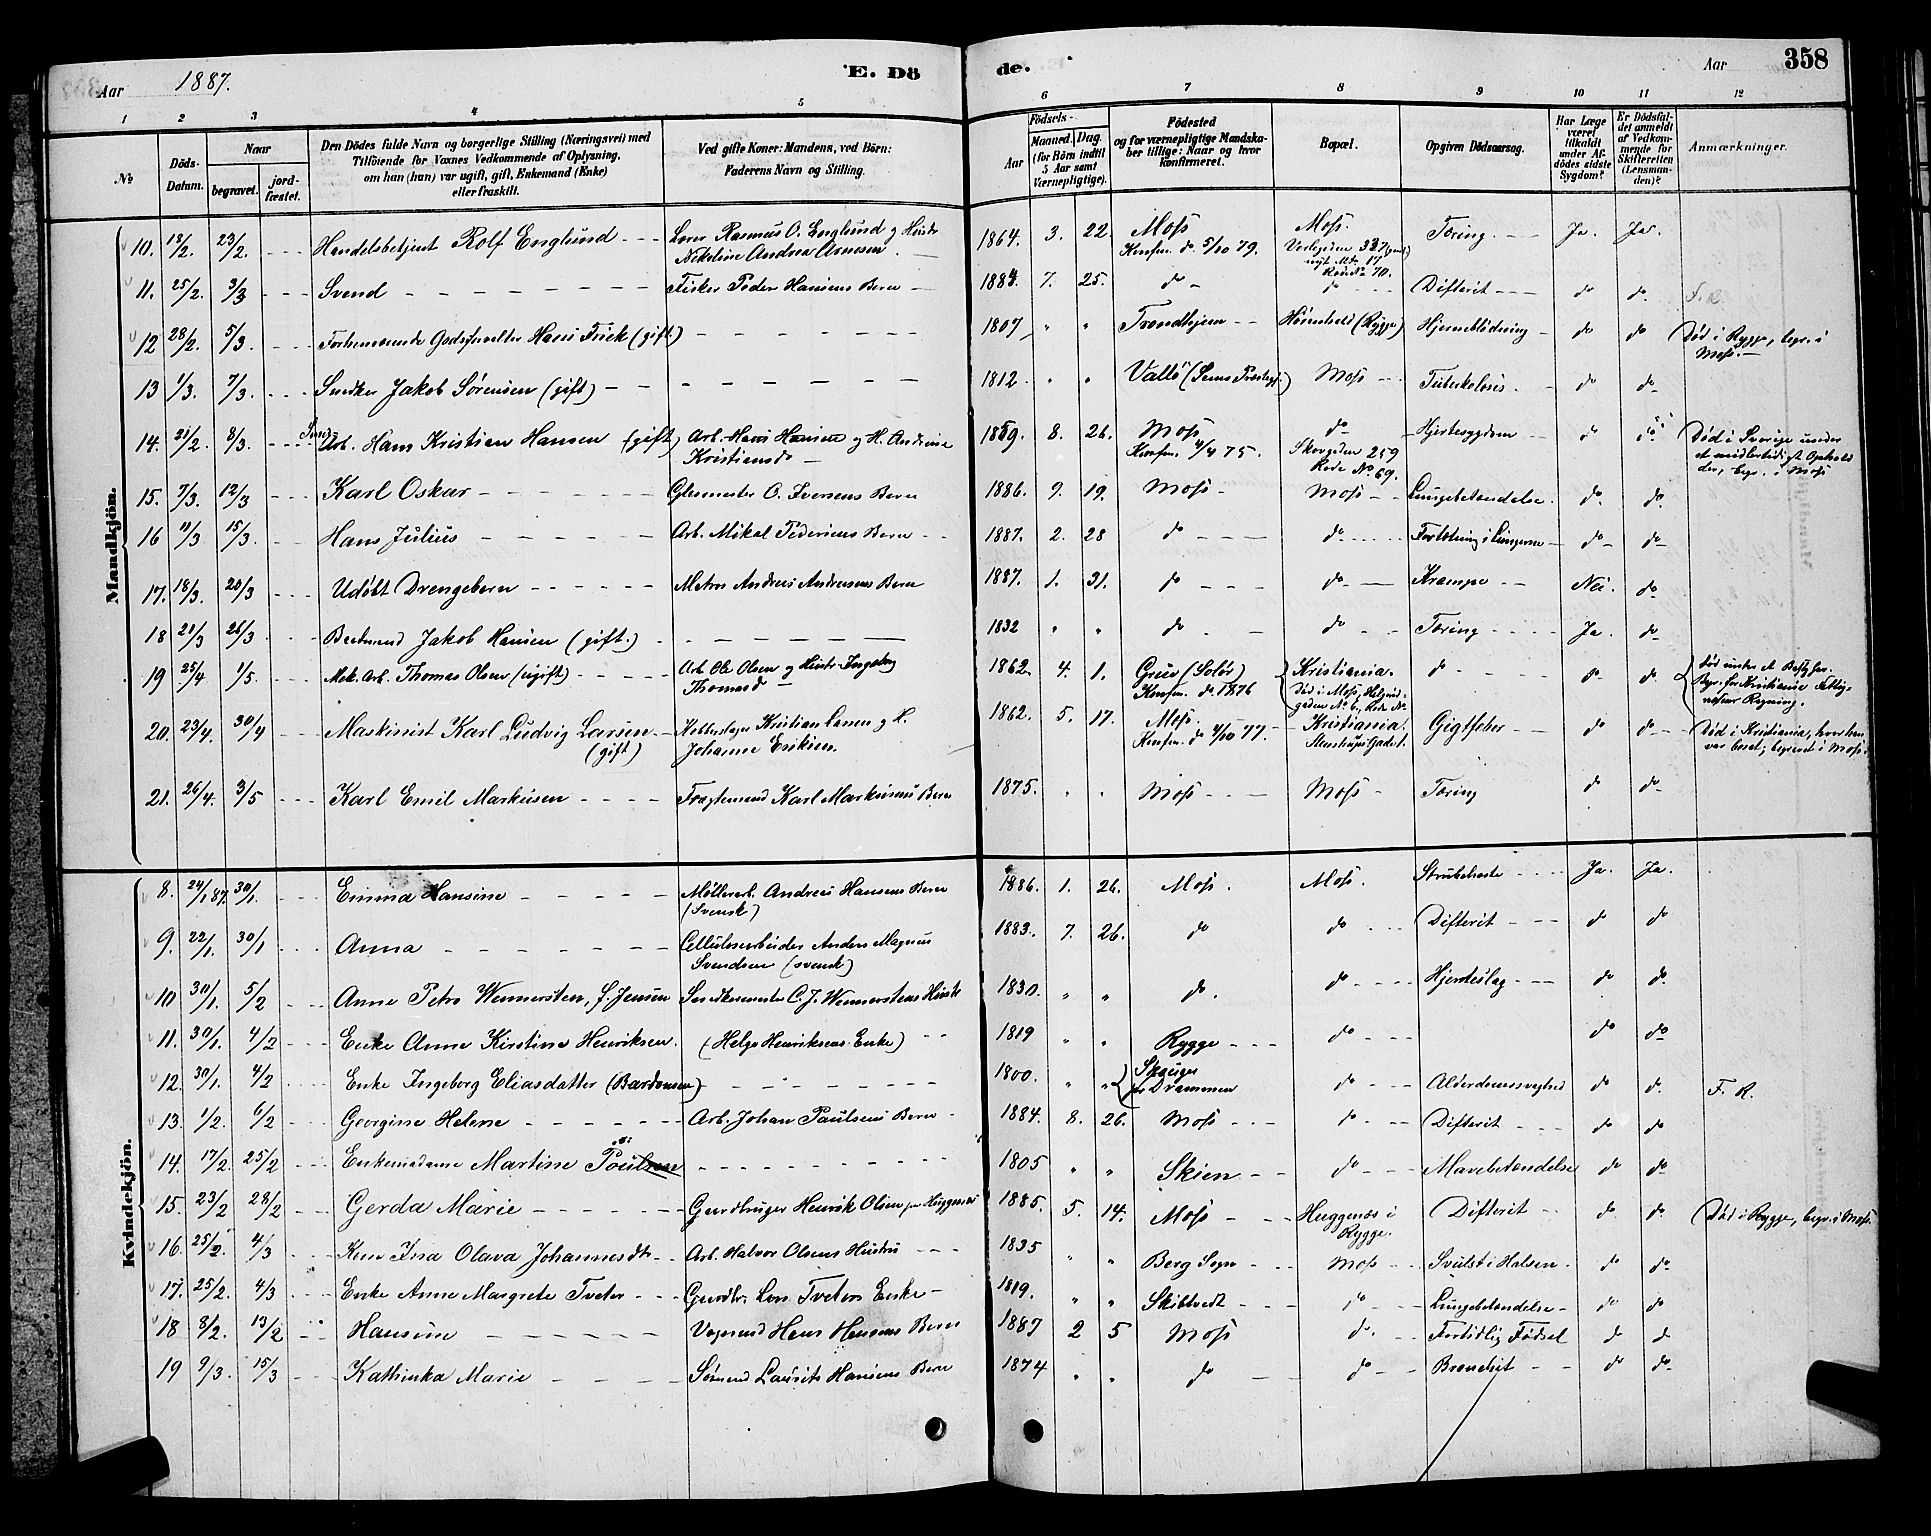 Aar 1887.
E. Dö
de.
Aar
358
1 2 3 4 5
6 7 8 9 10 11 12
№
Döds-Datum.
Naar
begravet.
jord-fæstet.
Den Dödes fulde Navn og borgerlige Stilling (Næringsvei) med
Tilföiende for Voxnes Vedkommende af Oplysning,
om han (hun) var ugift, gift, Enkemand (Enke)
eller fraskilt.
Ved gifte Koner: Mandens, ved Börn:
Faderens Navn og Stilling.
Födsels-
Aar
Maaned.
Dag.
(for Börn indtil
5 Aar samt
Værnepligtige).
Födested
og for værnepligtige Mandska-
ber tillige: Naar og hvor
konfirmeret.
Bopæl.
Opgiven Dödsaarsag.
Har Læge
været
tilkaldt
under Af-
dödes sidste
Sygdom?
Er Dödsfal-
det anmeldt
af Vedkom-
mende for
Skifteretten
(Lensman-
den)?
Anmærkninger.
Mandkjön.
10. 23/2. Handelsbetjent Rolf Englund Rasmus O. Englund og Hustr Andrea 1864. 3. 22. Moss Konfm. do 5/10 79. Moss. Tæring. Ja. Ja.
11. 25/2. 3/3 Svend Fisker Peder Hansens Barn 1884. 7. 25. do do Difterit do do F. R.
12 28/2. 5/3. Forhenværende Godsforvalter Hans Frick (gift) 1807 " " Trondhjem (Rygge) Hjerneblödning do do Död i Rygge, begr. i Moss.
13 1/3. 7/3. Snedker Jakob Sörensen (gift) 1812 " " Vallö Moss Tuberkelosis. do do
14. 21/2. 8/3. Arb. Hans Kristian Hansen (gift) Arb. Hans Hansen og H. Andrine Kristiansd. 1859. 8. 26. Moss Konfm. 4/4 75. do Skovgaden 259 Rode No 69. Hjertesygdom do do Död i Sverige under et midlertidigt Ophold der, begr. i Moss
15. 7/3. 12/3 Karl Oskar Glasmester O. Iversens Barn 1886. 9. 19. Moss Moss Lungebetændelse. do do
16 11/3 15/3. Hans Julius Arb. Mikal Pedersens Barn 1887. 2. 28 do do Fortætning i Lungerne do do
17. 18/3. 20/3 Udöbt Drengebarn Matros Andreas Andresens Barn 1887. 1. 31. do do Krampe Nei. do
18 21/3 26/3. Baatmand Jakob Hansen (gift.) 1832 " " do do Tæring Ja. do
19 25/4 1/5. Mek. Arb. Thomas Olsen (ugift) Arb. Ole Olsen og Hustr. Ingeborg Thomasd 1862. 4. 1. Grue (Solör) Konfm. do 1876 Kristiania. Död i Moss, do do do Död under et Besög her. Begr. for Kristiania Fattigvæsens Regning.
20. 23/4. 30/4 Maskinist Karl Ludvig Larsen (gift) Kobberslager Kristian Larsen og H. Johanne Eriksen. 1862. 5. 17. Moss. Konfm. do 4/10 77. Kristiania. Stenstrups Gade 1. Gigtfeber do do Död i Kristiania, hvor han var bosat, begravet i Moss.
21. 26/4. 3/5 Karl Emil Markusen Fragtemand Karl Markusens Barn 1875. " " Moss Moss Tæring do do
Kvindekjön.
8. 24/1 87. 30/1. Emma Hansine Möllerarb. Andreas Hansens Barn (Svensk) 1886. 1. 26. Moss. Moss. Strubehoste Ja. Ja.
9. 22/1. 30/1 Anna Cellulosearbeider Anders Magnus Svendsen (svensk) 1883. 7. 26. do do Difterit do do
10 30/1. 5/2 Anne Petra Wennersten, f. Jensen Snedkermester C. J. Wennerstens Hustr 1830. " " do. do Hjerteslag do do
11. 30/1. 4/2 Enke Anne Kirstine Henriksen. (Helge Henriksens Enke) 1819 " " Rygge do do do
12 30/1. 4/2 Enke Ingeborg Eliasdatter (Bardonsen) 1800. " " Skouger pr Drammen do Alderdomssvaghed do do F. R.
13. 1/2. 6/2 Georgine Helene Arb. Johan Paulsens Barn 1884. 8. 26. Moss do Difterit do do
14. 17/2. 25/2 Enkemadame Martine 1805 " " Skien do Mavebetændelse do do
15. 23/2 28/2 Gerda Marie Gaardbruger Henrik Olsen Huggenæs 1885. 5. 14. Moss Huggenæs i Rygge. Difterit do do Död i Rygge, begr. i Moss.
16. 25/2. 4/3 Kone Ina Olava Johannesdtr Arb. Halvor Olsens Hustru 1835 " " Berg Sogn Moss Svulst i Halsen. do do
17. 25/2. 4/3 Enke Anne Margrete Tveter Gaardbr. Lars Tveters Enke 1819. " " Skibtvedt do Lungebetændelse do do
18 8/2. 13/2 Hansine Vognmand Hans Hansens Barn 1887 2 5 Moss do. Fortidlig Födsel do do
19 9/3. 15/3 Kathinka Marie Sömand Laurits Hansens Barn 1874 " " do do Bronchit do do